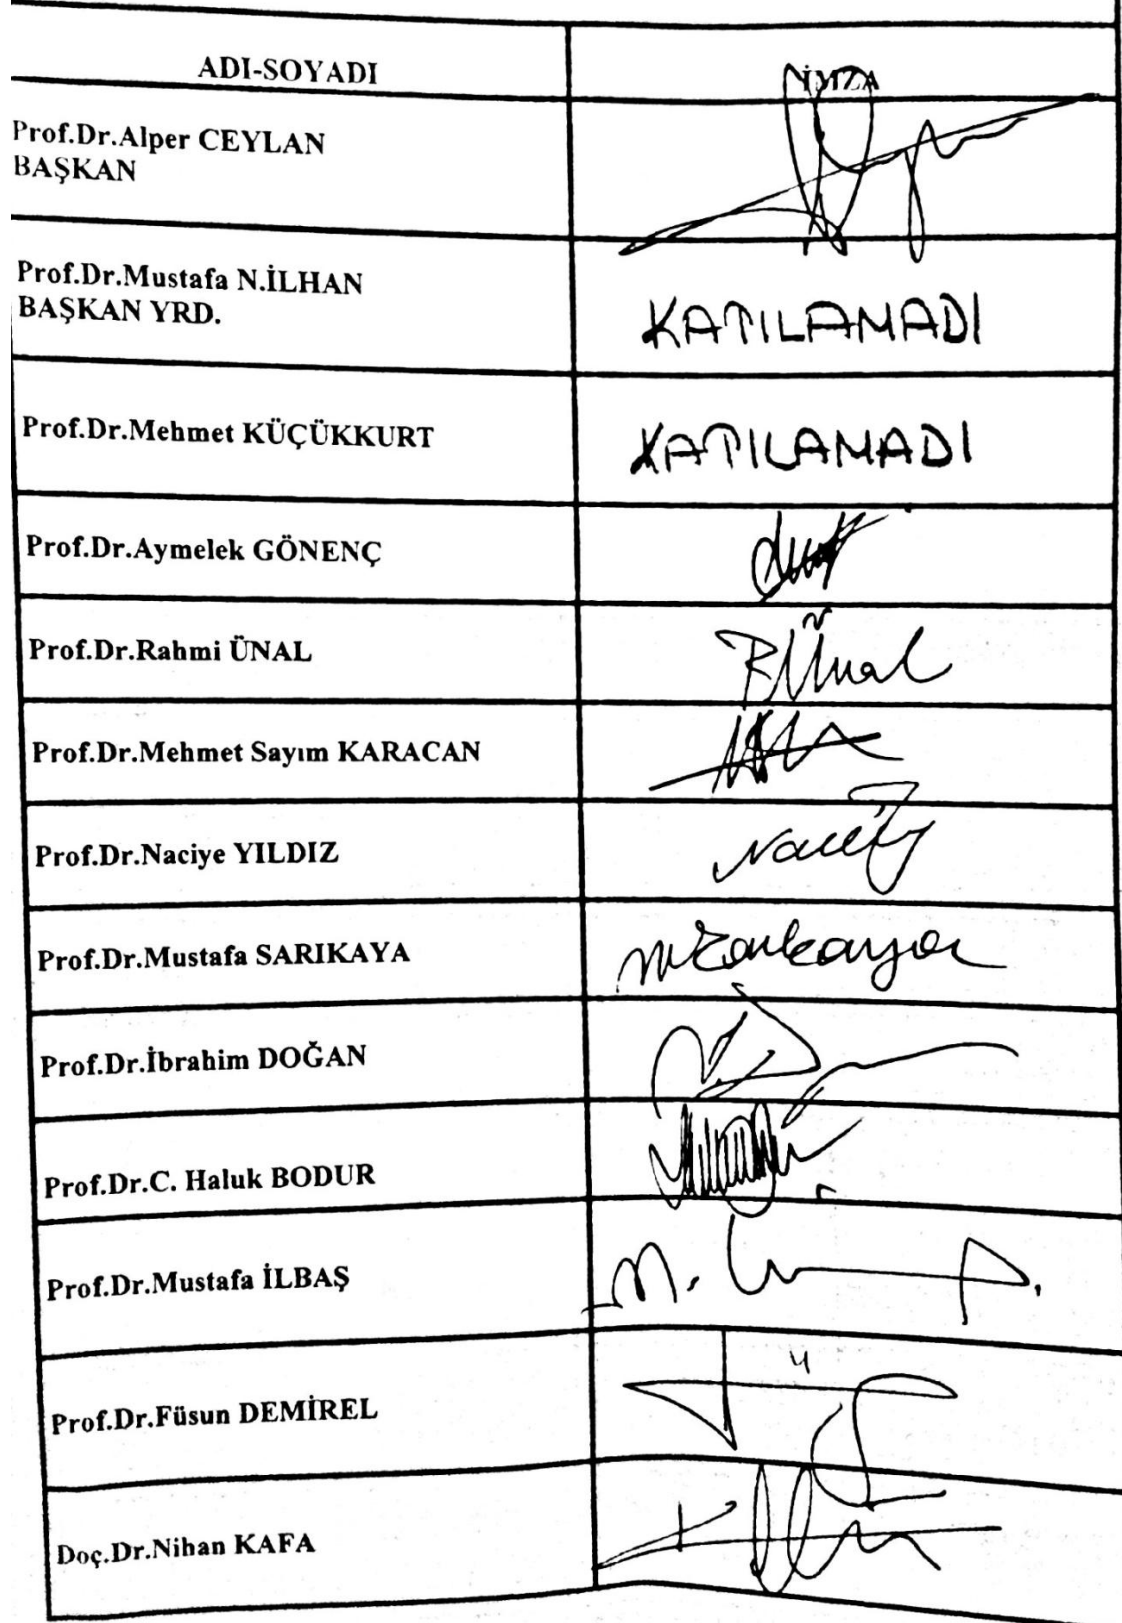 ADI-SOYADI İMZA
Prof.Dr.Alper CEYLAN
BAŞKAN
Prof.Dr.Mustafa N.İLHAN
BAŞKAN YRD.
KATILAMADI
Prof.Dr.Mehmet KÜÇÜKKURT KATILAMADI
Prof.Dr.Aymelek GÖNENÇ
Prof.Dr.Rahmi ÜNAL
Prof.Dr.Mehmet Sayım KARACAN
Prof.Dr.Naciye YILDIZ
Prof.Dr.Mustafa SARIKAYA
Prof.Dr.İbrahim DOĞAN
Prof.Dr.C. Haluk BODUR
Prof.Dr.Mustafa İLBAŞ
Prof.Dr.Füsun DEMİREL
Doç.Dr.Nihan KAFA